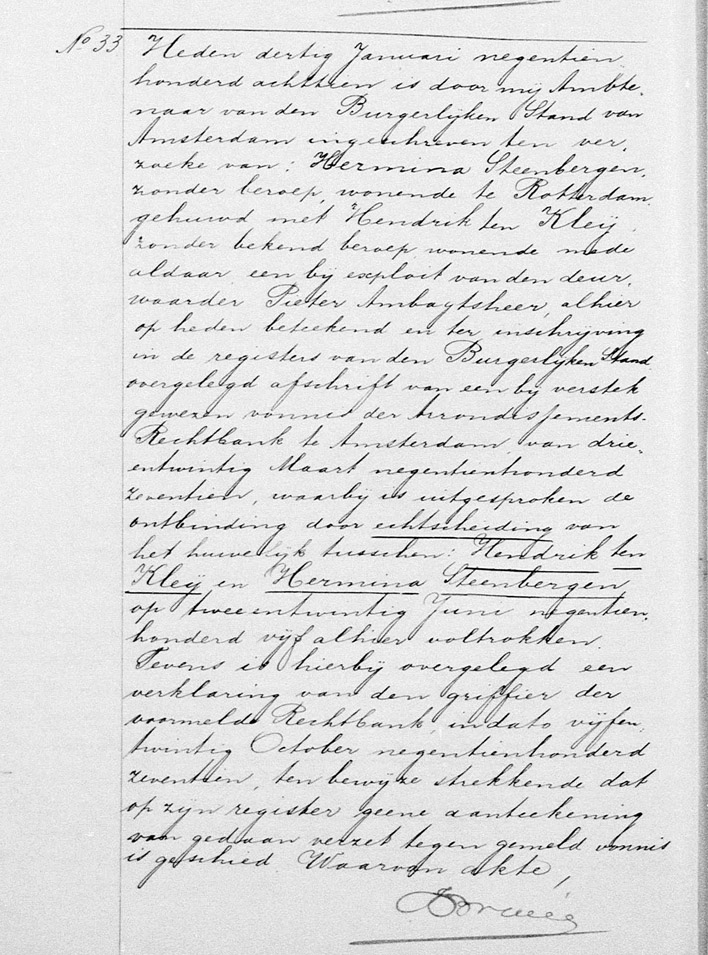 No 33
Heden dertig Januari negentien
honderd achttien is door mij Ambte,
naar van den Burgerlijken Stand van
Amsterdam ingeschreven ten ver,
zoeke van: Hermina Steenbergen,
zonder beroep, wonende te Rotterdam
gehuwd met Hendrik ten Kleij,
zonder bekend beroep wonende mede
aldaar, een bij exploit van den deur,
waarder Pieter Ambagtsheer, alhier
op heden beteekend en ter inschrijving
in de registers van den Burgerlijken Stand
overgelegd afschrift van een bij verstek
gewezen vonnis der Arrondissements-
Rechtbank te Amsterdam, van drie,
entwintig Maart negentienhonderd
zeventien, waarbij is uitgesproken de
ontbinding door echtscheiding van
het huwelijk tusschen: Hendrik ten
Kleij en Hermina Steenbergen
op tweeentwintig Juni negentien,
honderd vijf alhier voltrokken.
Tevens is hierbij overgelegd een
verklaring van den griffier der
voormelde Rechtbank, in dato vijfen,
twintig October negentienhonderd
zeventien, ten bewijze strekkende dat
op zijn register geene aanteekening
van gedaan verzet tegen gemeld vonnis
is geschied. Waarvan akte,